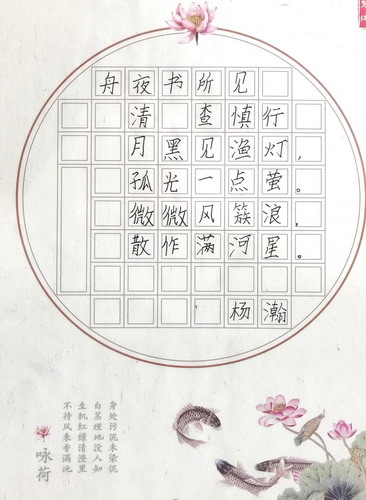 舟夜书所见
清 查慎行
月黑见渔灯,
孤光一点萤。
微微风簇浪,
散作满河星。
杨瀚
身处污泥未染泥
白茎埋地没人知
生机红绿清澄里
不待风来香满池
咏荷